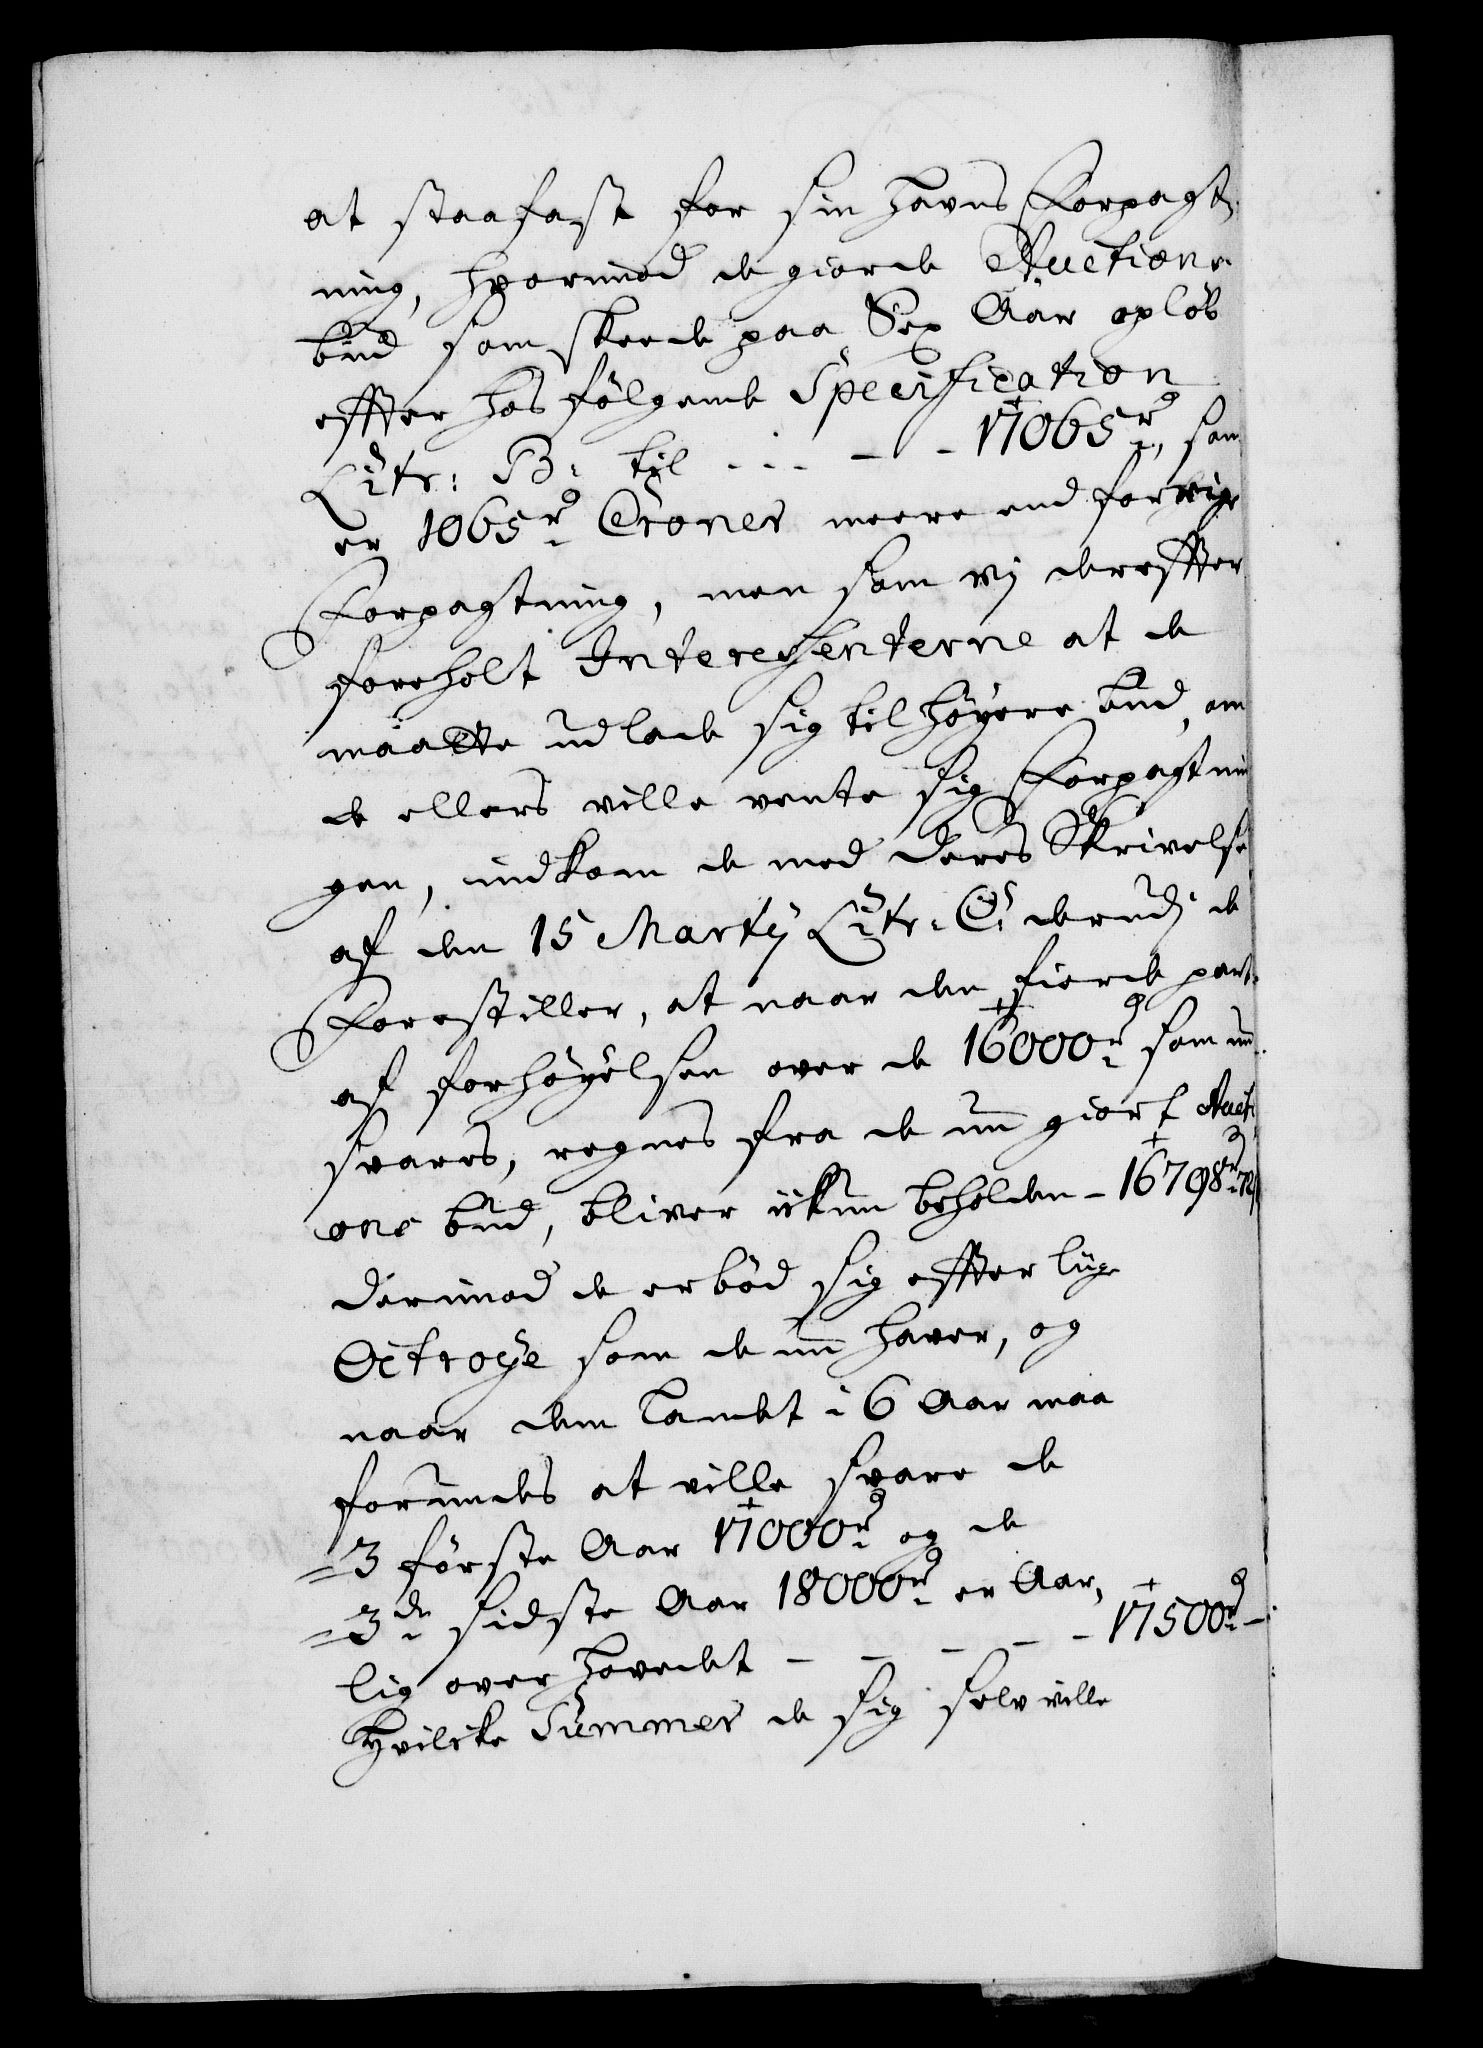 at staa fast for sin havns Forpagt-
ning, hvorimod de giorde Auctions
bud som skeede paa Sex Aar opløb
effter hos følgende Specification
Litr: B: til - - - - - 17065 rd, som
er 1065 rd Croner meere end forrige
Forpagtning, men som vj dereffter
foreholt Interessenterne at de
maatte udlade sig til høyere bud, om
de ellers ville vente sig Forpagtnin
gen, indkom de med deres Skrivelse
af den 15 Martij Litr: C: derudj de
Forestiller, at naar den fierde part
af forhøyelsen over de 16000 rd som nu
svares, regnes fra de nu giort Aucti
ons bud, bliver ickun beholden - 16798 rd 72
Derimod de erbød sig effter lige
Octroye som de nu haver, og
naar dem Landet i 6 Aar maa
forundes at ville svare de
3 første Aar 17000 rd og de
3de sidste Aar 18000 rd er Aar,
lig over hovedet - - - - - 17500 rd -
Hvilcke Summer de sig selv ville